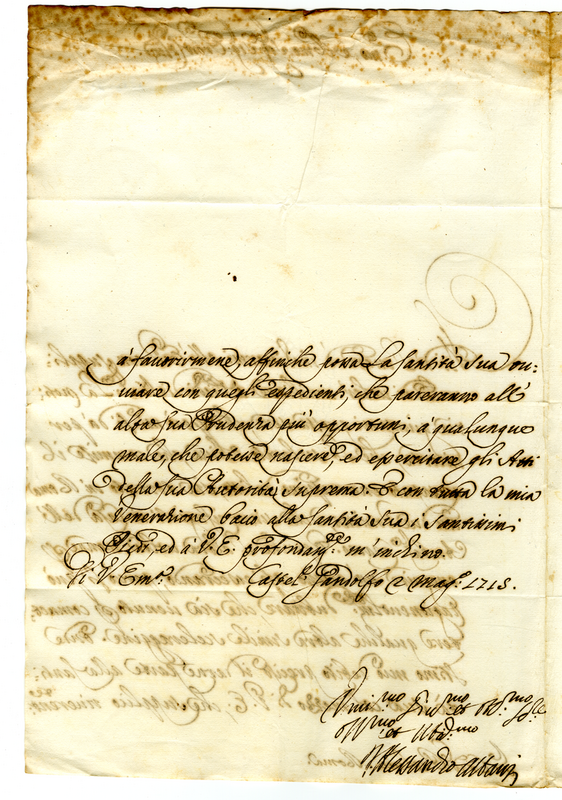 à favorirmene, affinche possa La Santità Sua ou:
uiare con quegli espedienti, che pareranno all'
alta Sua Prudenza più opportuni, à qualunque
male, che potesse nascere, ed esercitare gli Atti
della Sua Autorità Suprema. E con tutta la mia
Venerazione bacio alla Santità Sua i Santissimi
Piedi, ed à V. E. profondam.te m'inchino.
Di V. Em.a Castel Gandolfo 2 Mag.o 1715.
Umi.mo Diu.mo et
et
Alessandro Albani